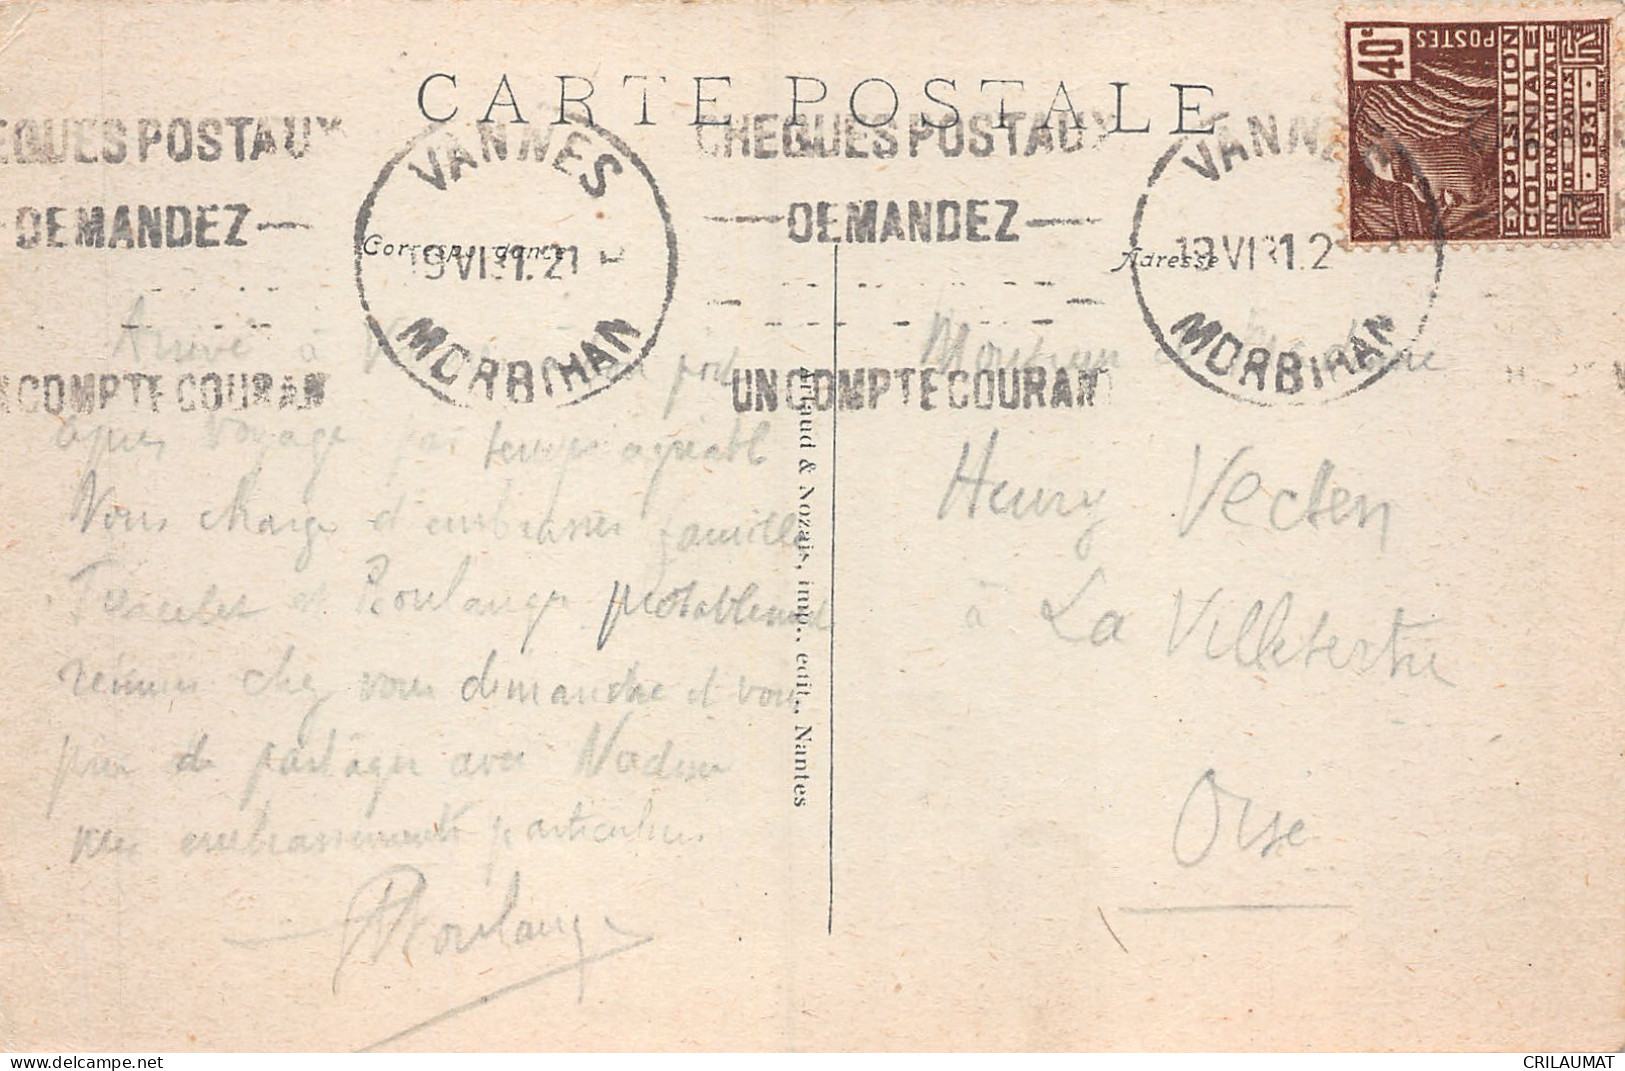 CARTE POSTALE
40c
POSTES
EXPOSITION
COLONIALE
INTERNATIONALE
DE PARIS
1931
EQUES POSTAUX
DEMANDEZ
UN COMPTE COURANT
VANNES
19 VI 31.21
MORBIHAN
CHEQUES POSTAUX
DEMANDEZ
UN COMPTE COURANT
VANNES
19 VI 31.2
MORBIHAN
Correspondance
Adresse
Arrivé à
après voyage par temps agréable
Vous charge d'embrasser famille
et Roulange probablement
réunis chez vous dimanche et vous
prie de partager avec
mes embrassements particuliers
Roulange
Artaud & Nozais, imp., edit., Nantes
Monsieur
Henry Vecten
à La Villetertre
Oise
CRILAUMAT